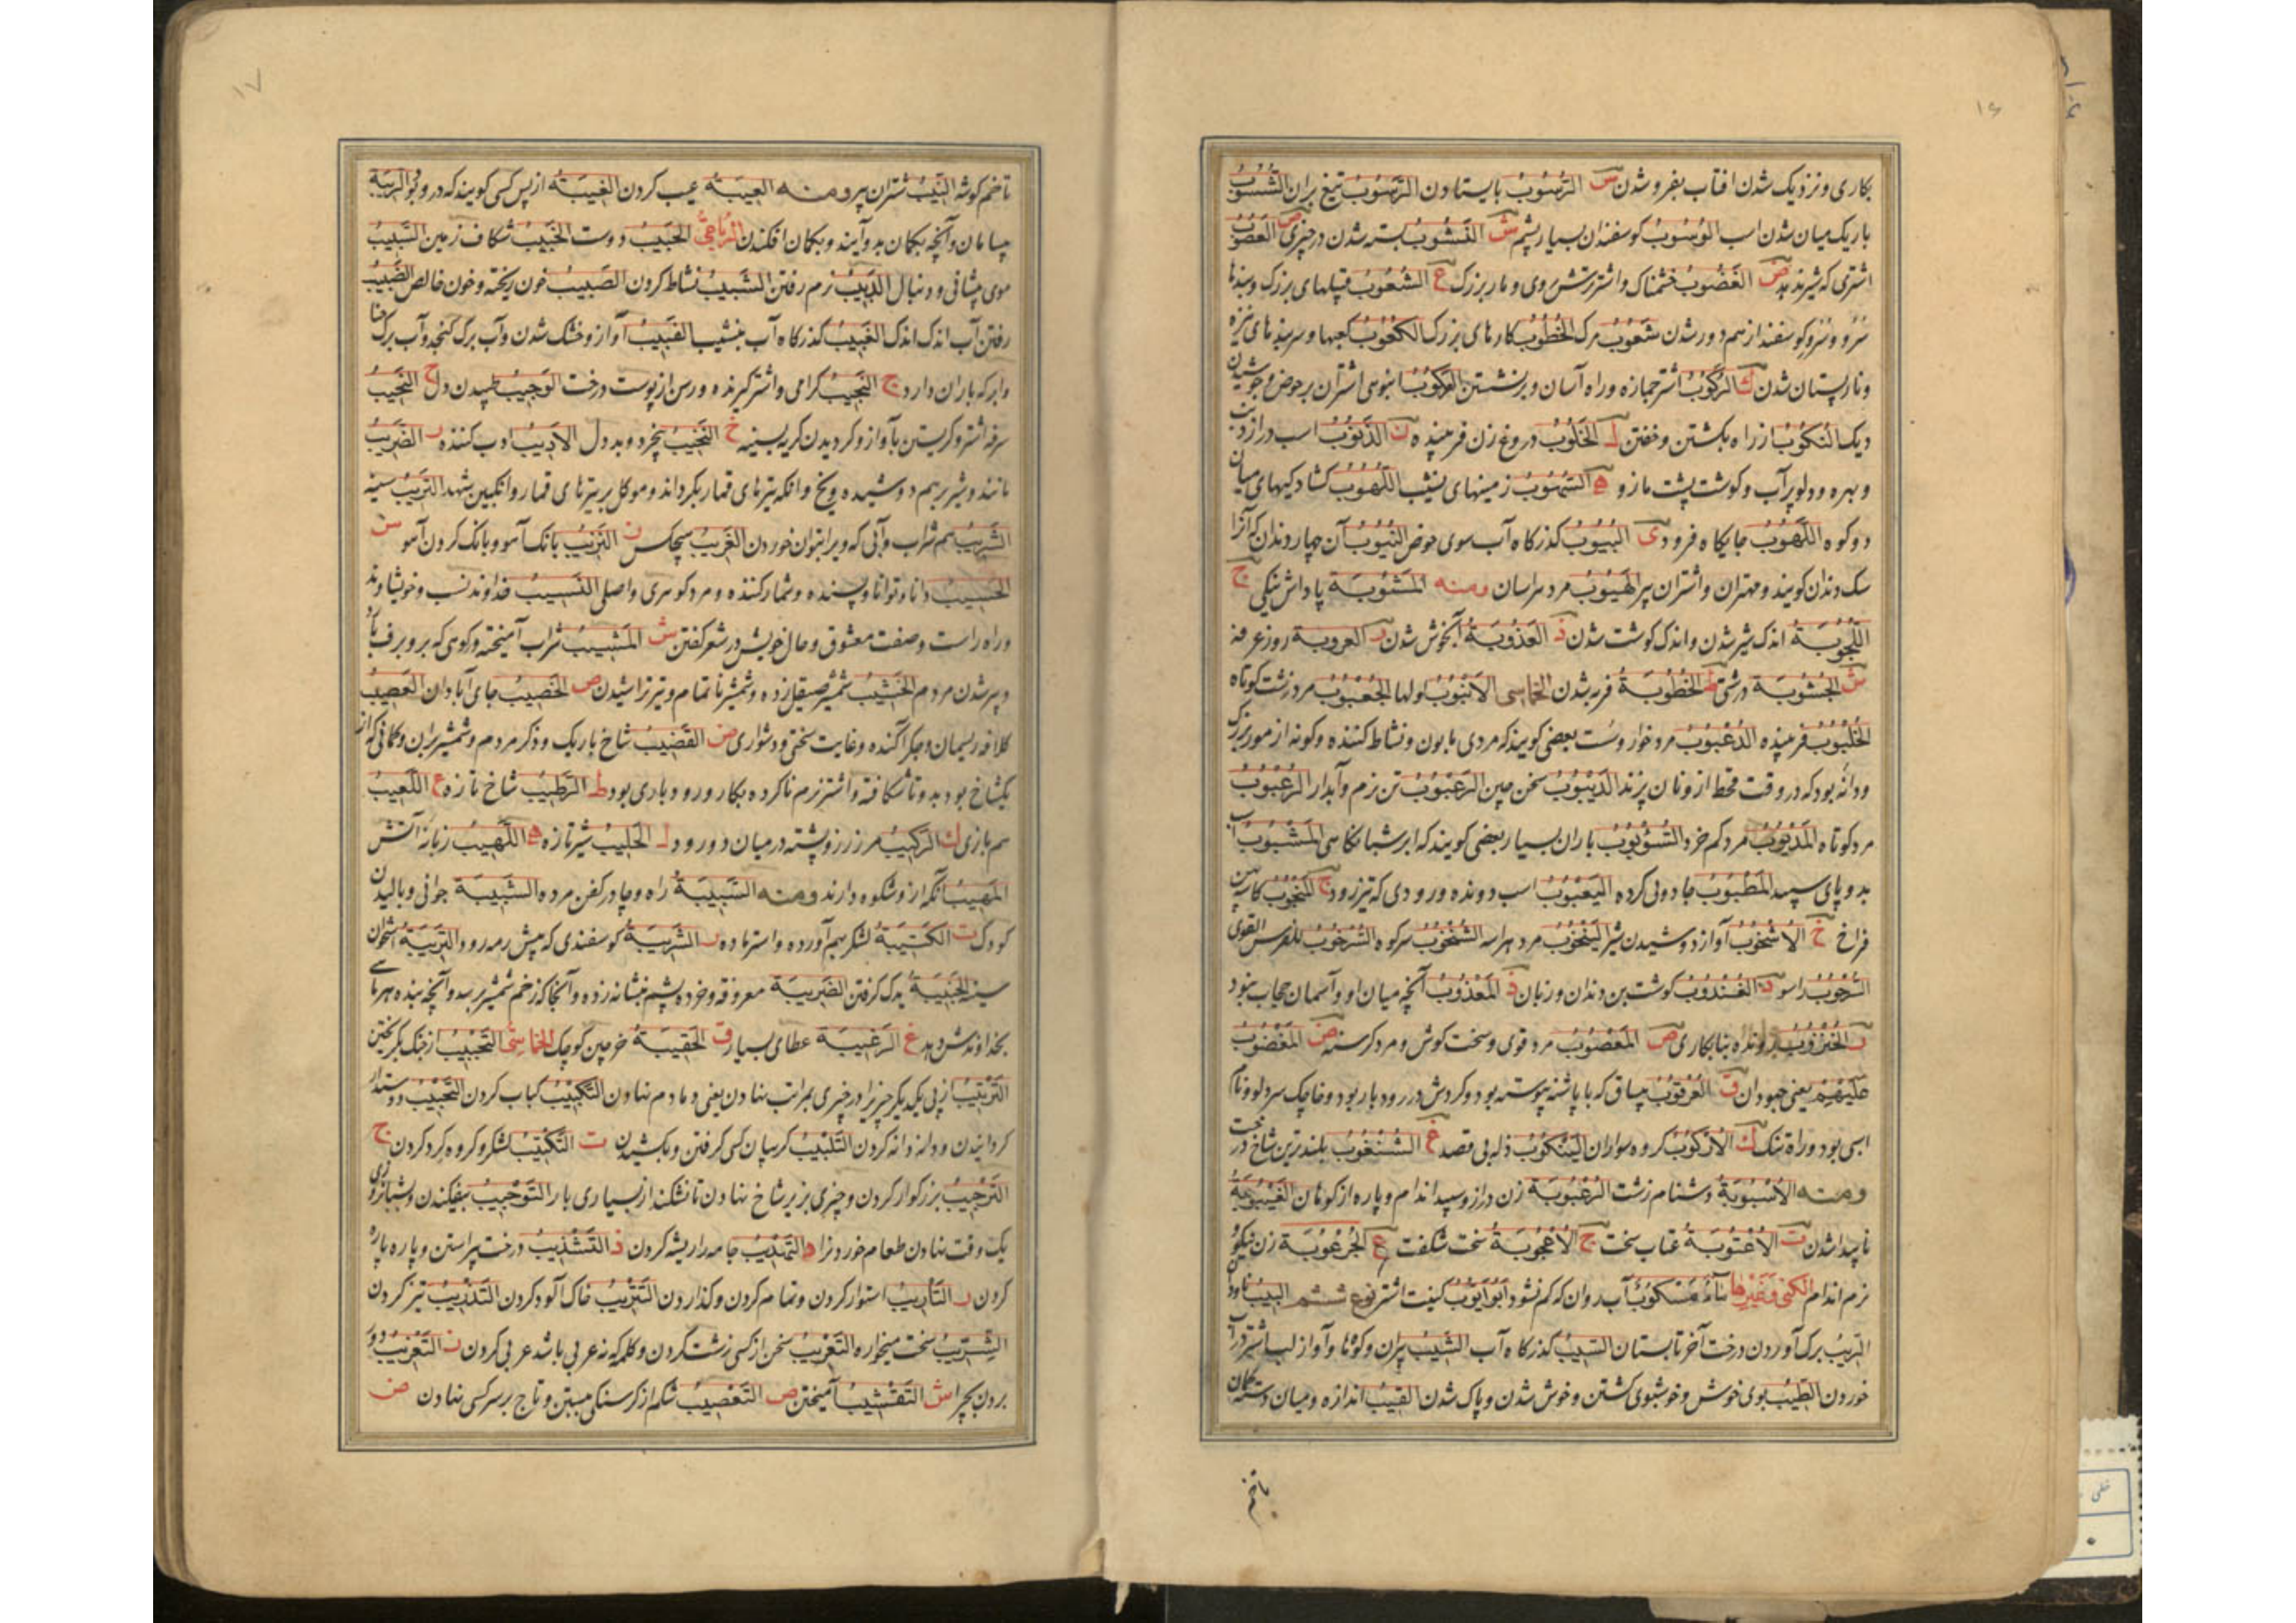 ۱۶
بکاری و نزدیک شدن افتاب بفرو شدن س الرُّسُوبُ بایستادن الرَّسُوبُ تیغ بران الشُّسُوبُ
باریک میان شدن اسب کوسفندان بسیار پشم ش النُّشُوبُ بسته شدن در چیزی ص العَصُوبُ
اشتری که شیر ندهد ض الغَضُوبُ خشمناک و اشتر ترش روی و مار بزرگ ع الشُّعُوبُ قبیلهای بزرگ و بندها
سُرو و سُرو کوسفند از هم دور شدن شَعُوبُ مرک الخُطُوبُ کارهای بزرگ الکُعُوبُ کعبها و سربندهای نیزه
و نارپستان شدن ك الرَّکُوبُ اشتر جمازه و راه آسان و برنشستن العُکُوبُ انبوهی اشتران بر حوض و جوشیدن
دیک النُّکُوبُ از راه بکشتن و خفتن ل الخَلُوبُ دروغ زن فریبنده ن الذَّنُوبُ اسب دراز دنب
و بهره و دلو پرآب و کوشت پشت مازو ه السُّهُوبُ زمینهای نشیب اللُّهُوبُ کشادکیهای میان
دو کوه اللَّهُوبُ جایکاه فرود ی البُیُوبُ کذرکاه آب سوی حوض النُّیُوبُ آن چهار دندان که آنرا
سک دندان کویند و مهتران و اشتران پیر الهَیُوبُ مرد هراسان ومنه المَثُوبَة پاداش نیکی ج
اللُّجُوبَة اندک شیر شدن و اندک کوشت شدن ذ العُذُوبَة آبخوش شدن ر العروبة روز عرفه
ش الجُشُوبَة درشتی ظ الخُظُوبَة فربه شدن الخماسی الاُنبُوبُ ولها الجُعبُوبُ مرد زشت کوتاه
الخُلبُوبُ فریبنده الدُّعبُوبُ مرد خوار و سُست بعضی کویند که مردی مابون و نشاط کننده و کونه از مور بزرک
و دانه بود که در وقت قحط از و نان پزند الدَّیبُوبُ سخن چین الرُّعبُوبُ تن نرم و آبدار الرُّعبُوبُ
مرد کوتاه مرد کم خرد الشُّؤبُوبُ باران بسیار بعضی کویند که ابر شبانکاهی المَشبُوبُ اسب
بدو پای سپید المَطبُوبُ جادویی کرده الیَعبُوبُ اسب دونده و رودی که تیز رود ج
فراخ خ الاُشخُوبُ آواز دوشیدن شیر الیَنخُوبُ مرد هراسه الشُّنخُوبُ سرکوه السُّرحُوبُ للفرس القوی
السُّرحُوبُ راسو د الغُندُوبُ کوشت بن دندان و زبان ذ المَعذُوبُ آنچه میان او و آسمان حجاب نبود
ر نابکاری ص المَعصُوبُ مرد قوی و سخت کوش و مرد کرسنه ض المَغضُوبُ
عَلَیهِم یعنی جهودان ق العُرقُوبُ پی ساق که با پاشنه پیوسته بود و کردش در رود بار بود و خاچک سر دلو و نام
اسبی بود و راه تنک ك الاُرکُوبُ کروه سواران الیَنکُوبُ ذلیل بی قصد غ الشُّنغُوبُ بلندترین شاخ درخت
ومنه الاُسبُوبَة دشنام زشت الرُّعبُوبَة زن دراز و سپید اندام و پاره از کوهان الغَیبُوبَةُ
ناپیدا شدن ت الاُعتُوبَة عتاب سخت ج الاُعجُوبَة سخت شکفت ع الجُرعُوبَة زن نیکو
نرم اندام الکنی وغیرها مَاءٌ مَسکُوبٌ آب روان که کم نشود اَبُو اَیُّوبَ کنیت اشتر نوع ششم
برک آوردن درخت آخر تابستان السَّیبُ کذرکاه آب الشَّیبُ پیران و کوهها و آواز لب اشتر در آب
خوردن الطِّیبُ بوی خوش و خوشبوی کشتن و خوش شدن و پاک شدن القِیبُ اندازه و میان دسته کمان
تا خم
۱۷
تا خم کوشه النِّیبُ شتران پیر ومنه العیبَة عیب کردن الغیبَة از پس کسی کویند که در و بود الرِّیبَة
و آنچه بکمان بدو آیند و بکمان افکندن الرُّباعِیُّ الحَبِیبُ دوست الخَبِیبُ شکاف زمین السَّبِیبُ
موی پیشانی و دنبال الدَّبِیبُ نرم رفتن الشَّبِیبُ نشاط کردن الصَّبِیبُ خون ریخته و خون خالص الضَّبِیبُ
رفتن آب اندک اندک الغَبِیبُ کذرکاه آب بنشیب القَبِیبُ آواز و خشک شدن و آب برک کنجد و آب برک حنا
و ابر که باران دارد ج النَّجِیبُ کرامی و اشتر کیرنده و رسن از پوست درخت الوَجِیبُ طپیدن دل ح النَّحِیبُ
سرفه اشتر و کریستن بآواز و کردیدن کریه بسینه خ النَّخِیبُ بیخرد و بددل الاَدِیبُ ادب کننده ر الضَّرِیبُ
مانند و شیر بر هم دوشیده و یخ و آنکه تیرهای قمار بکرداند و موکل بر تیرهای قمار و انکبین شهد التَّرِیبُ سینه
الشَّرِیبُ هم شراب و آبی که ویرا بتوان خوردن الغَرِیبُ بیکس ن النَّزِیبُ بانک آهو و بانک کردن آهو س
الحَسِیبُ دانا و توانا و بسنده و شمار کننده و مرد کوهری و اصلی النَّسِیبُ خداوند نسب و خویشاوند
و راه راست و صفت معشوق و حال خویش در شعر کفتن ش المَشِیبُ شراب آمیخته و کوهی که بر و برف بارد
و پیر شدن مردم الخَشِیبُ شمشیر صیقل زده و شمشیر ناتمام و تیر تراشیدن ص الخَصِیبُ جای آبادان العَصِیبُ
کلافه ریسمان و جکر آکنده و غایت سختی و دشواری ض القَضِیبُ شاخ باریک و ذکر مردم و شمشیر بران و کمانی که از
یکشاخ بود بدو ناشکافته و اشتر نرم ناکرده بکار و رود باری بود ط الرَّطِیبُ شاخ تازه ع اللَّعِیبُ
هم بازی ك الرَّکِیبُ مرز زر و پشته در میان دو رود ل الحَلِیبُ شیر تازه ه اللَّهِیبُ زبانه آتش
المَهِیبُ آنکه از و شکوه دارند ومنه السَّبِیبَةُ راه و چادر کفن مرده الشَّبِیبَة جوانی و بالیدن
کودک ت الکَتِیبَة لشکر بهم آورده و استر ماده ر السَّرِیبَة کوسفندی که پیش رمه رود التَّرِیبَة استخوان
سینه الجَنِیبَة یدک کرفتن الضَّرِیبَة معروفه و خرده پشم بشانه زده و آنجا که زخم شمشیر برسد و آنچه بنده هر ماهی
بخداوندش دهد غ الرَّغِیبَة عطای بسیار ق الحَقِیبَة خرجین کوچک الخُماسِیُّ التَّجبِیبُ از جنک بکریختن
التَّرتِیبُ از پی یکدیکر چیزیرا در چیزی بمراتب نهادن یعنی دمادم نهادن التَّکبِیبُ کباب کردن التَّحبِیبُ دوستدار
کردانیدن و دانه دانه کردن التَّلبِیبُ کریبان کسی کرفتن و بکشیدن ت التَّکتِیبُ لشکر و کروه کرد کردن ج
التَّرجِیبُ بزرکوار کردن و چیزی بزیر شاخ نهادن تا نشکند از بسیاری بار التَّوجِیبُ بیفکندن و شبانروزی
یک وقت نهادن طعام خوردنرا د التَّهدِیبُ جامه را ریشه کردن ذ التَّشذِیبُ درخت پیراستن و پاره پاره
کردن ر التَّأرِیبُ استوار کردن و تمام کردن و کذاردن التَّترِیبُ خاک آلود کردن التَّذرِیبُ تیز کردن
الشِّرِّیبُ سخت میخواره التَّعرِیبُ سخن از کسی زشت کردن و کلمه که نه عربی باشد عربی کردن ن التَّعزِیبُ دور
بردن بچرا ش التَّقشِیبُ آمیختن ص التَّعصِیبُ شکم از کرسنکی ببستن و تاج بر سر کسی نهادن ض